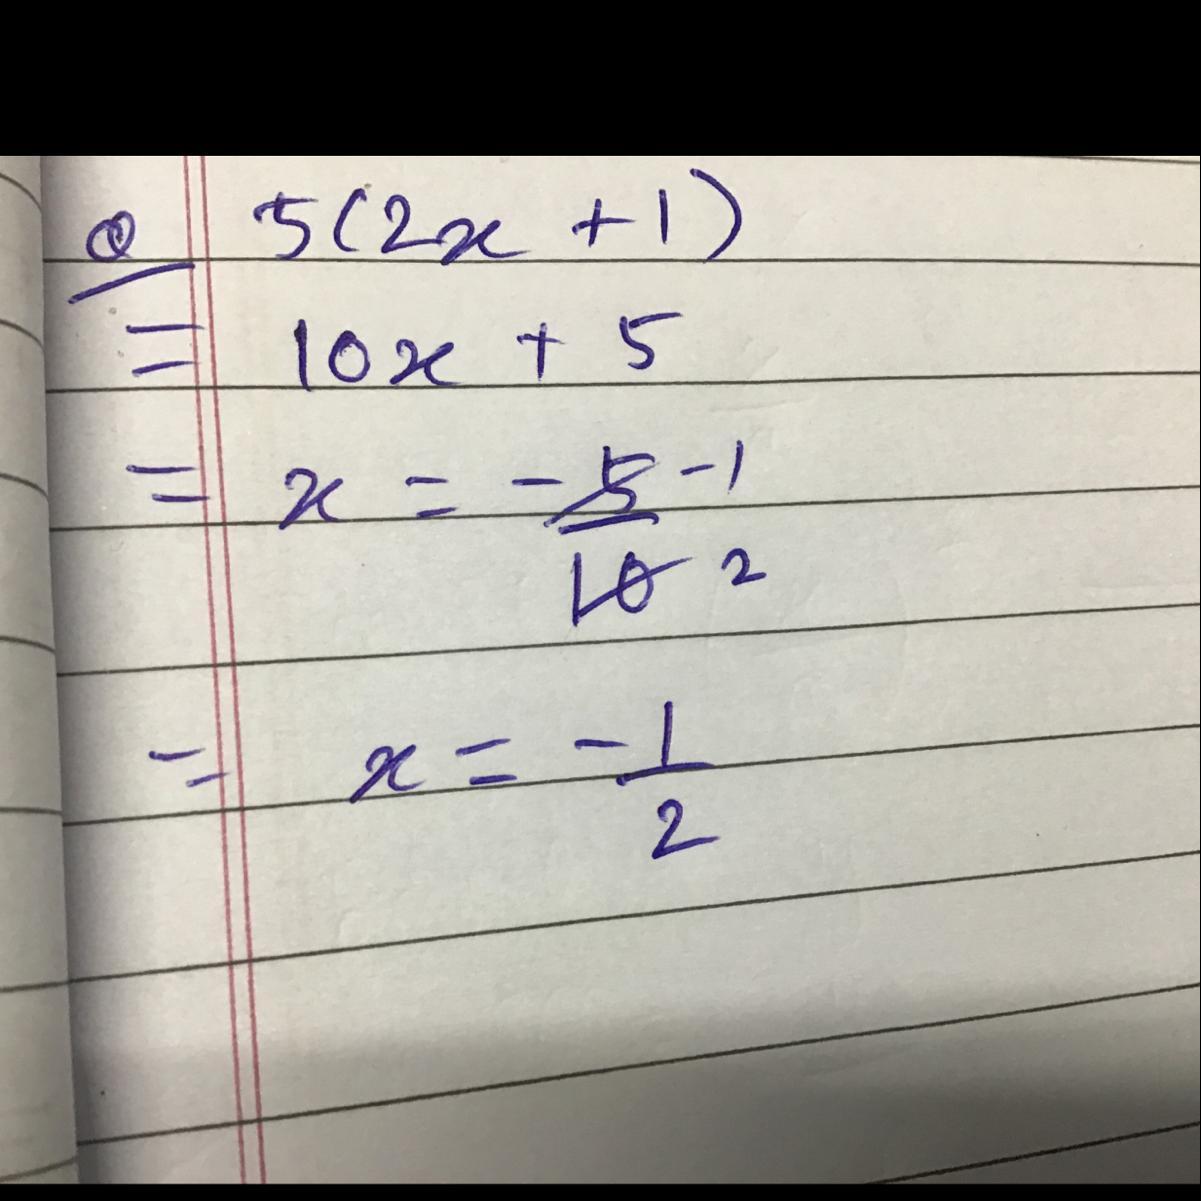 Q 5(2x + 1)
= 10x + 5
= x = -5/10 -1/2
= x = -1/2